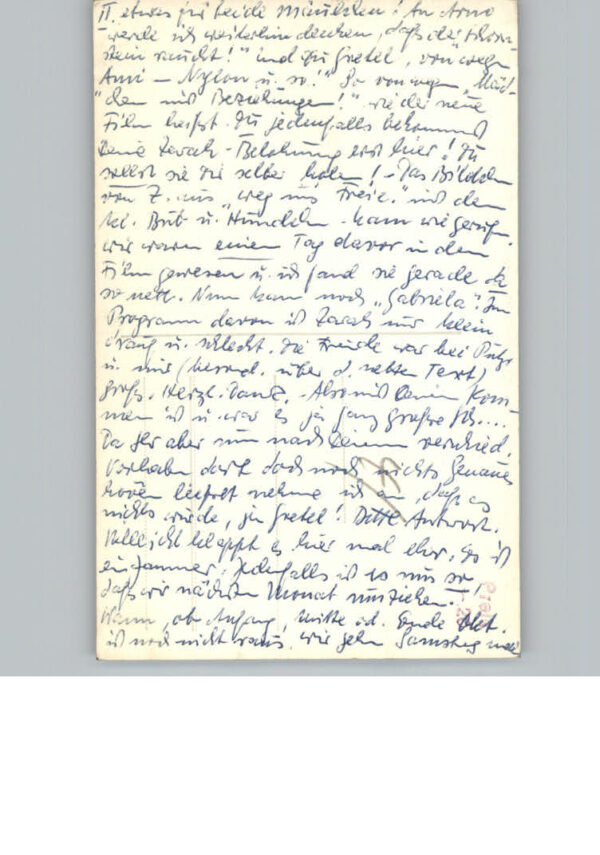 II. etwas für beide Mäulchen! An Arno
werde ich weiterhin denken, daß der Schorn-
stein raucht!" und zu Gretel, von wegen
Ami - Nylon u. so!" So von wegen „Mäd-
chen mit Beziehungen!" wie der neue
Film heißt. Du jedenfalls bekommst
Deine Zarah-Belohnung erst hier! Du
sollst sie Dir selber holen! - Das Bildchen
von Z. aus „Weg ins Freie" mit dem
kl. Bub u. Hündchen kam wie gerufen.
wir waren einen Tag davor in dem
Film gewesen u. ich fand sie gerade da
so nett. Nun kam noch „Gabriela". Im
Programm davon ist Zarah nur klein
drauf u. schlecht. Die Freude war bei
u. mir (besond. über d. netten Text)
groß. Herzl. Dank. - Also mit Deinem Kom-
men ist u. war es ja ganz große
Da Ihr aber nun nach Deinem verschied.
Vorhaben dort doch noch nichts Genaues
hören ließest nehme ich an, daß es
nichts wurde, ja Gretel! Bitte Antwort.
Vielleicht klappt es hier mal eher, es ist
ein Jammer. Jedenfalls ist es nun so
daß wir nächsten Monat umziehen.
Wann, ob Anfang, Mitte od. Ende Okt.
ist noch nicht raus. Wir gehn Samstag